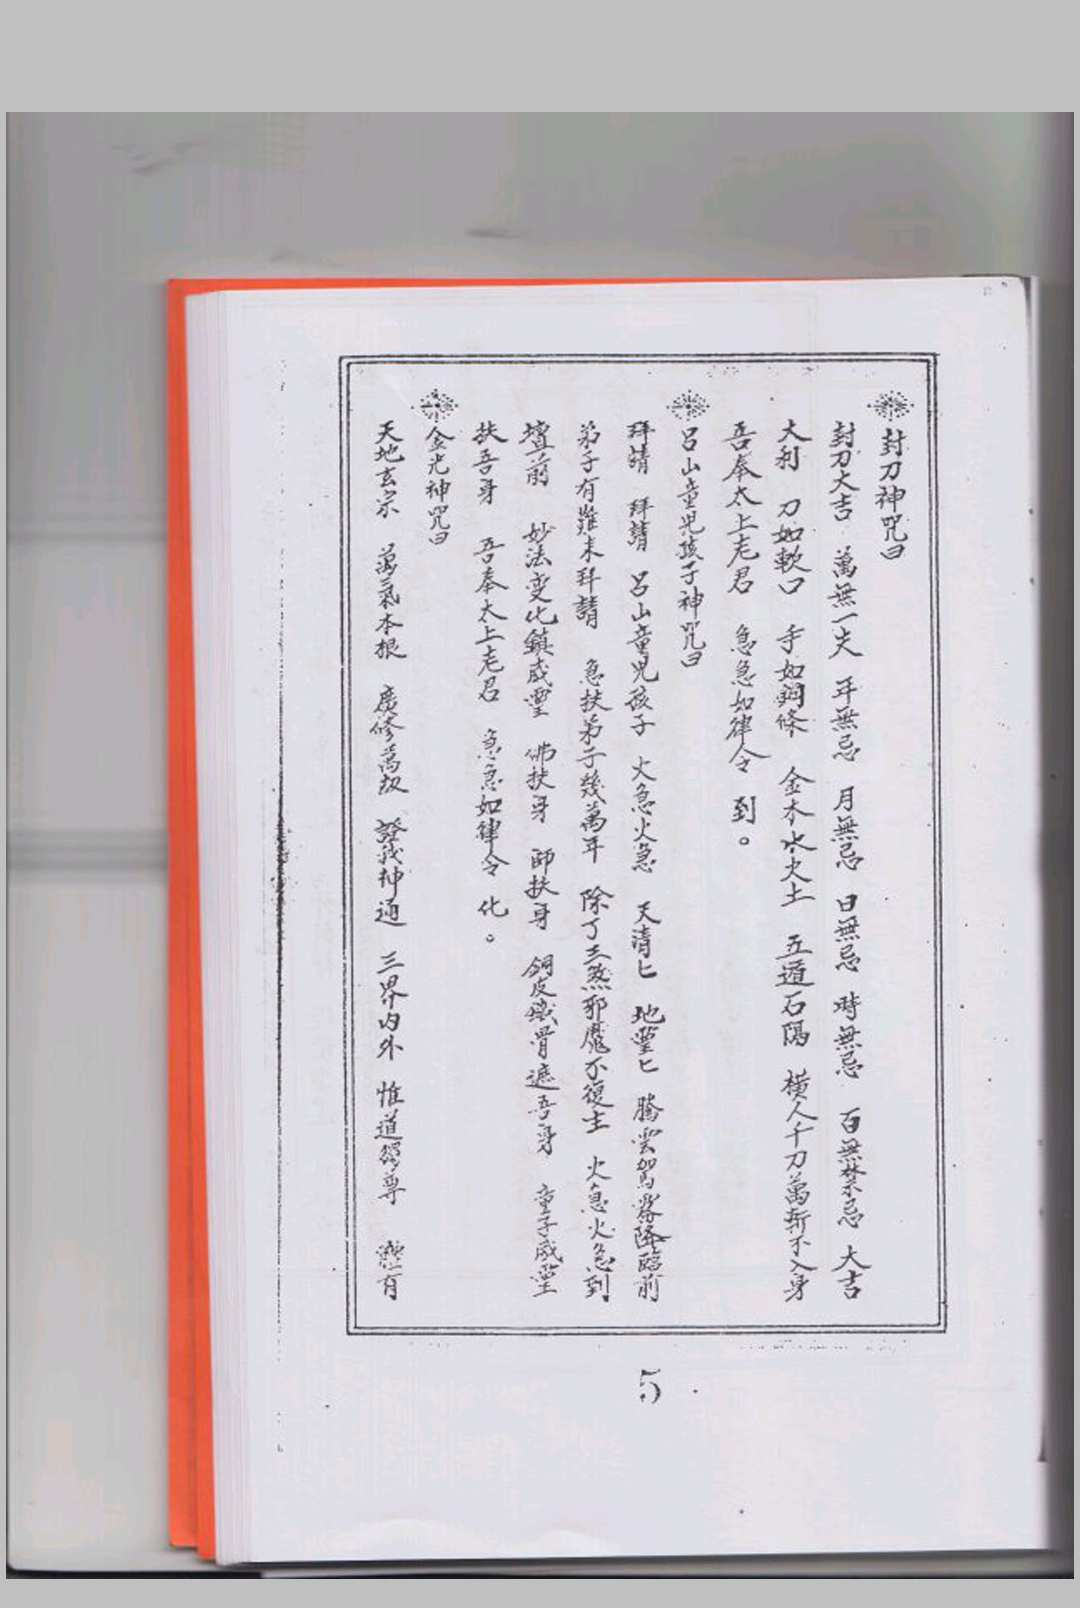 封刀神咒曰
封刀大吉 萬無一失 年無忌 月無忌 日無忌 時無忌 百無禁忌 大吉
大利 刀如軟口 手如鋼條 金木水火土 五遁石隔 橫人千刀萬斬不入身
吾奉太上老君 急急如律令 到。
呂山童兒孩子神咒曰
拜請 拜請 呂山童兒孩子 火急火急 天清匕 地靈匕 騰雲駕霧降臨前
弟子有難來拜請 急扶弟子幾萬年 除了三煞邪魔不復生 火急火急到
壇前 妙法变化鎮威靈 佛扶身 師扶身 銅皮鐵骨遮吾身 童子威靈
扶吾身 吾奉太上老君 急急如律令 化。
金光神咒曰
天地玄宗 萬氣本根 廣修萬劫 證我神通 三界內外 惟道獨尊 體有
5